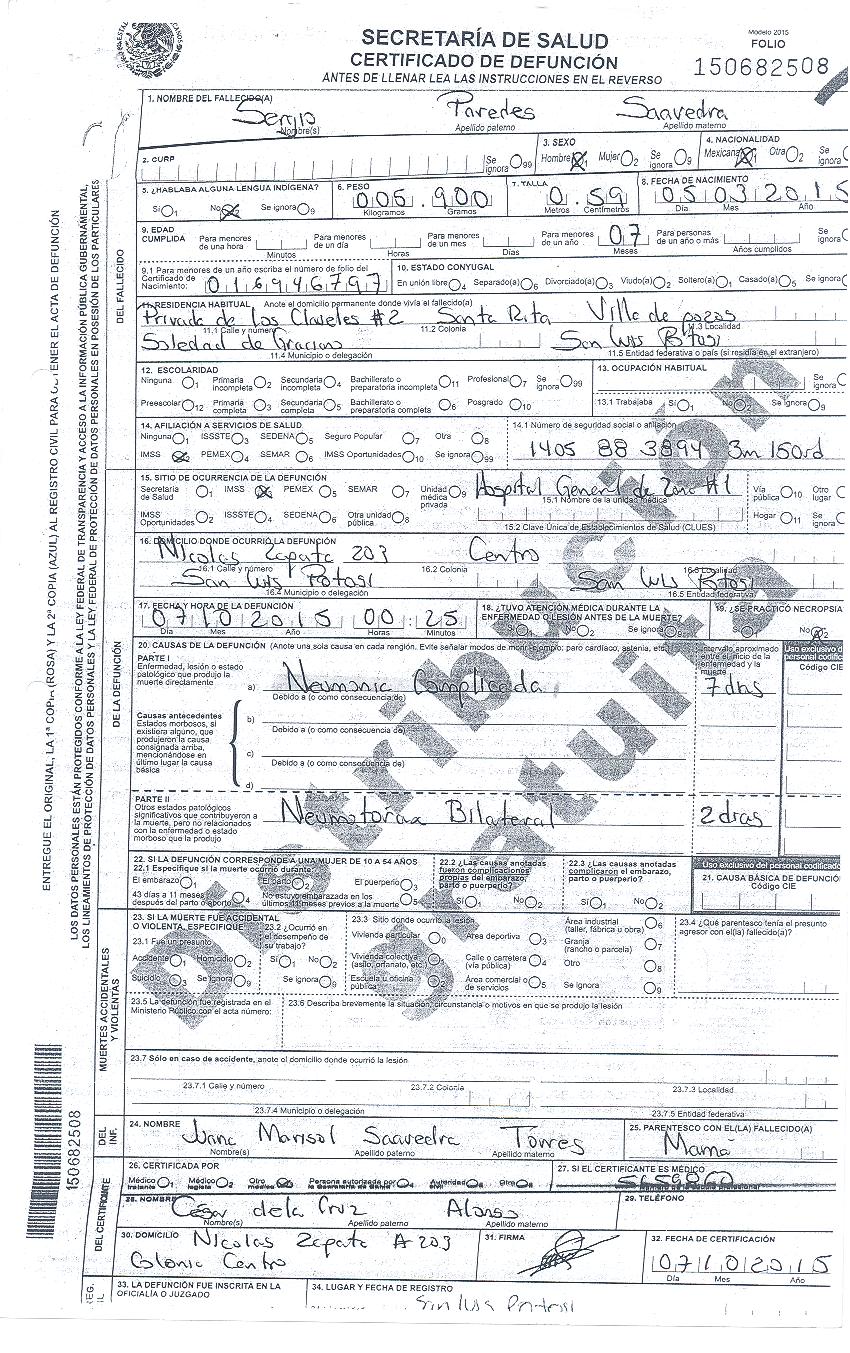 Modelo 2015
SECRETARÍA DE SALUD
FOLIO
CERTIFICADO DE DEFUNCIÓN
150682508
ANTES DE LLENAR LEA LAS INSTRUCCIONES EN EL REVERSO
1. NOMBRE DEL FALLECIDO(A)
Sergio Paredes Saavedra
Nombre(s) Apellido paterno Apellido materno
2. CURP Se ignora 99 3. SEXO Hombre 1 Mujer 2 Se ignora 9 4. NACIONALIDAD Mexicana 1 Otra 2 Se ignora
5. ¿HABLABA ALGUNA LENGUA INDÍGENA? 6. PESO 7. TALLA 8. FECHA DE NACIMIENTO
Sí 1 No 2 Se ignora 9 006.900 0.59 05032015
Kilogramos Gramos Metros Centímetros Día Mes Año
9. EDAD CUMPLIDA Para menores de una hora Para menores de un día Para menores de un mes Para menores de un año 07 Para personas de un año o más
Minutos Horas Días Meses Años cumplidos
9.1 Para menores de un año escriba el número de folio del Certificado de Nacimiento 016946797
10. ESTADO CONYUGAL
En unión libre 4 Separado(a) 6 Divorciado(a) 3 Viudo(a) 2 Soltero(a) 1 Casado(a) 5 Se ignora
11. RESIDENCIA HABITUAL Anote el domicilio permanente donde vivía el fallecido(a)
Privada de los Claveles #2 Santa Rita Villa de pozos
11.1 Calle y número 11.2 Colonia 11.3 Localidad
Soledad de Gracian San Luis Potosi
11.4 Municipio o delegación 11.5 Entidad federativa o país (si residía en el extranjero)
12. ESCOLARIDAD 13. OCUPACIÓN HABITUAL
Ninguna 1 Primaria incompleta 2 Secundaria incompleta 4 Bachillerato o preparatoria incompleta 11 Profesional 7 Se ignora 99 Se ignora
Preescolar 12 Primaria completa 3 Secundaria completa 5 Bachillerato o preparatoria completa 6 Posgrado 10 13.1 Trabajaba Sí 1 No 2 Se ignora 9
14. AFILIACIÓN A SERVICIOS DE SALUD 14.1 Número de seguridad social o afiliación
Ninguna 1 ISSSTE 3 SEDENA 5 Seguro Popular 7 Otra 8
IMSS PEMEX 4 SEMAR 6 IMSS Oportunidades 10 Se ignora 99 1405 88 3894 3m 15ord
15. SITIO DE OCURRENCIA DE LA DEFUNCIÓN
Secretaría de Salud 1 IMSS PEMEX 5 SEMAR 7 Unidad médica privada 9 Hospital General de Zona #1 Vía pública 10 Otro lugar
15.1 Nombre de la unidad médica
IMSS Oportunidades 2 ISSSTE 4 SEDENA 6 Otra unidad pública 8 Hogar 11 Se ignora
15.2 Clave Única de Establecimientos de Salud (CLUES)
16. DOMICILIO DONDE OCURRIÓ LA DEFUNCIÓN
Nicolas Zapata 203 Centro
16.1 Calle y número 16.2 Colonia 16.3 Localidad
San Luis Potosi San Luis Potosi
16.4 Municipio o delegación 16.5 Entidad federativa
17. FECHA Y HORA DE LA DEFUNCIÓN 18. ¿TUVO ATENCIÓN MÉDICA DURANTE LA ENFERMEDAD O LESIÓN ANTES DE LA MUERTE? 19. ¿SE PRACTICÓ NECROPSIA
07102015 00:25 Sí 1 No 2 Se ignora 9 Sí 1 No 2
Día Mes Año Horas Minutos
20. CAUSAS DE LA DEFUNCIÓN (Anote una sola causa en cada renglón. Evite señalar modos de morir, ejemplo: paro cardíaco, astenia, etc.) Intervalo aproximado entre el inicio de la enfermedad y la muerte
Uso exclusivo d personal codific
Código CIE
PARTE I
Enfermedad, lesión o estado patológico que produjo la muerte directamente
a) Neumonia Complicada 7 dias
Debido a (o como consecuencia de)
Causas antecedentes
Estados morbosos, si existiera alguno, que produjeron la causa consignada arriba, mencionándose en último lugar la causa básica
b)
Debido a (o como consecuencia de)
c)
Debido a (o como consecuencia de)
d)
PARTE II
Otros estados patológicos significativos que contribuyeron a la muerte, pero no relacionados con la enfermedad o estado morboso que la produjo
Neumotorax Bilateral 2 dias
22. SI LA DEFUNCIÓN CORRESPONDE A UNA MUJER DE 10 A 54 AÑOS
22.1 Especifique si la muerte ocurrió durante:
El embarazo 1 El parto 2 El puerperio 3
43 días a 11 meses después del parto o aborto 4 No estuvo embarazada en los últimos 11 meses previos a la muerte 5
22.2 ¿Las causas anotadas fueron complicaciones propias del embarazo, parto o puerperio? Sí 1 No 2
22.3 ¿Las causas anotadas complicaron el embarazo, parto o puerperio? Sí 1 No 2
Uso exclusivo del personal codificado
21. CAUSA BÁSICA DE DEFUNCIÓ
Código CIE
23. SI LA MUERTE FUE ACCIDENTAL O VIOLENTA, ESPECIFIQUE
23.1 Fue un presunto
Accidente 1 Homicidio 2
Suicidio 3 Se ignora 9
23.2 ¿Ocurrió en el desempeño de su trabajo?
Sí 1 No 2
Se ignora 9
23.3 Sitio donde ocurrió la lesión
Vivienda particular 0 Área deportiva 3 Área industrial (taller, fábrica u obra) 6
Vivienda colectiva (asilo, orfanato, etc.) 1 Calle o carretera (vía pública) 4 Granja (rancho o parcela) 7
Escuela u oficina pública 2 Área comercial o de servicios 5 Otro 8
Se ignora 9
23.4 ¿Qué parentesco tenía el presunto agresor con el(la) fallecido(a)?
23.5 La defunción fue registrada en el Ministerio Público con el acta número:
23.6 Describa brevemente la situación, circunstancia o motivos en que se produjo la lesión
23.7 Sólo en caso de accidente, anote el domicilio donde ocurrió la lesión
23.7.1 Calle y número 23.7.2 Colonia 23.7.3 Localidad
23.7.4 Municipio o delegación 23.7.5 Entidad federativa
24. NOMBRE 25. PARENTESCO CON EL(LA) FALLECIDO(A)
Juana Marisol Saavedra Torres Mamá
Nombre(s) Apellido paterno Apellido materno
26. CERTIFICADA POR 27. SI EL CERTIFICANTE ES MÉDICO
Médico tratante 1 Médico legista 2 Otro médico Persona autorizada por la Secretaría de Salud 4 Autoridad civil 5 Otro
28. NOMBRE 29. TELÉFONO
Cesar de la Cruz Alonso
Nombre(s) Apellido paterno Apellido materno
30. DOMICILIO Nicolas Zapata # 203 31. FIRMA 32. FECHA DE CERTIFICACIÓN
Colonia Centro 07102015
Día Mes Año
33. LA DEFUNCIÓN FUE INSCRITA EN LA OFICIALÍA O JUZGADO 34. LUGAR Y FECHA DE REGISTRO
San Luis Potosi
Distribución gratuita
DEL FALLECIDO
DE LA DEFUNCIÓN
MUERTES ACCIDENTALES Y VIOLENTAS
DEL INF.
DEL CERTIFICANTE
150682508